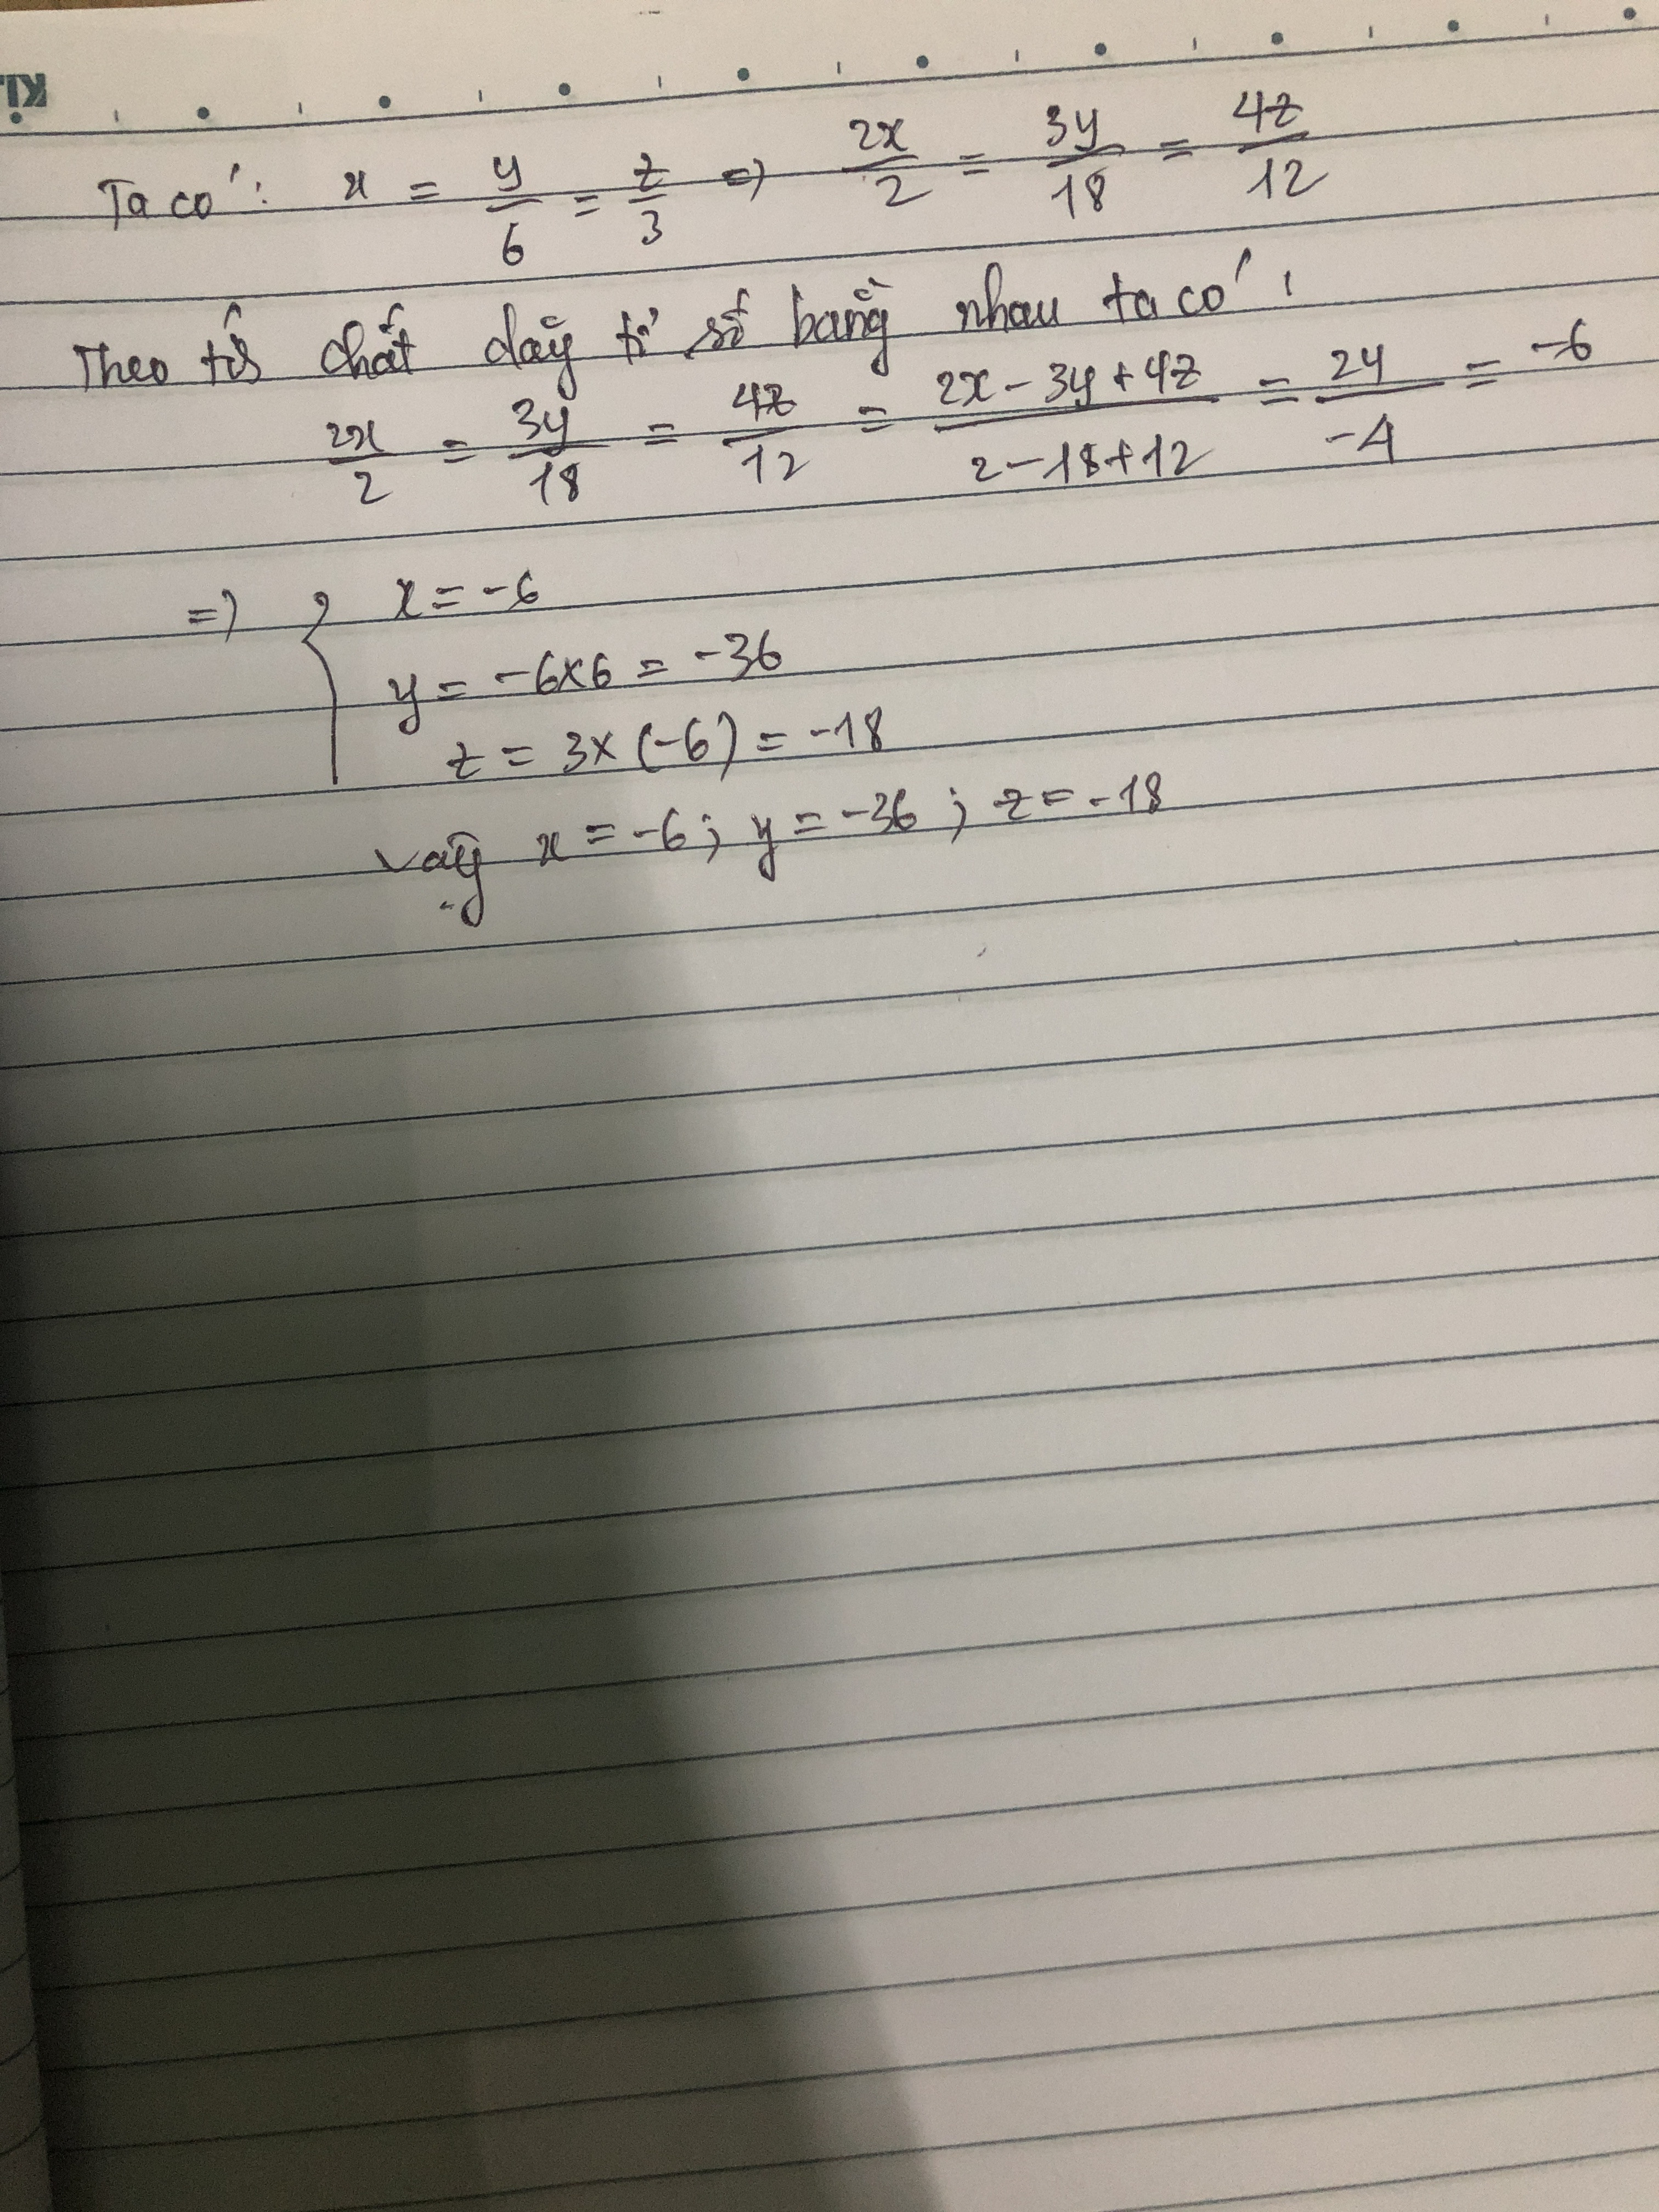 Ta có: x = y/6 = z/3 => 2x/2 = 3y/18 = 4z/12
Theo t/c chất dãy tỉ số bằng nhau ta có:
2x/2 = 3y/18 = 4z/12 = (2x - 3y + 4z)/(2 - 18 + 12) = 24/-4 = -6
=> { x = -6
y = -6x6 = -36
z = 3x(-6) = -18
Vậy x = -6; y = -36; z = -18